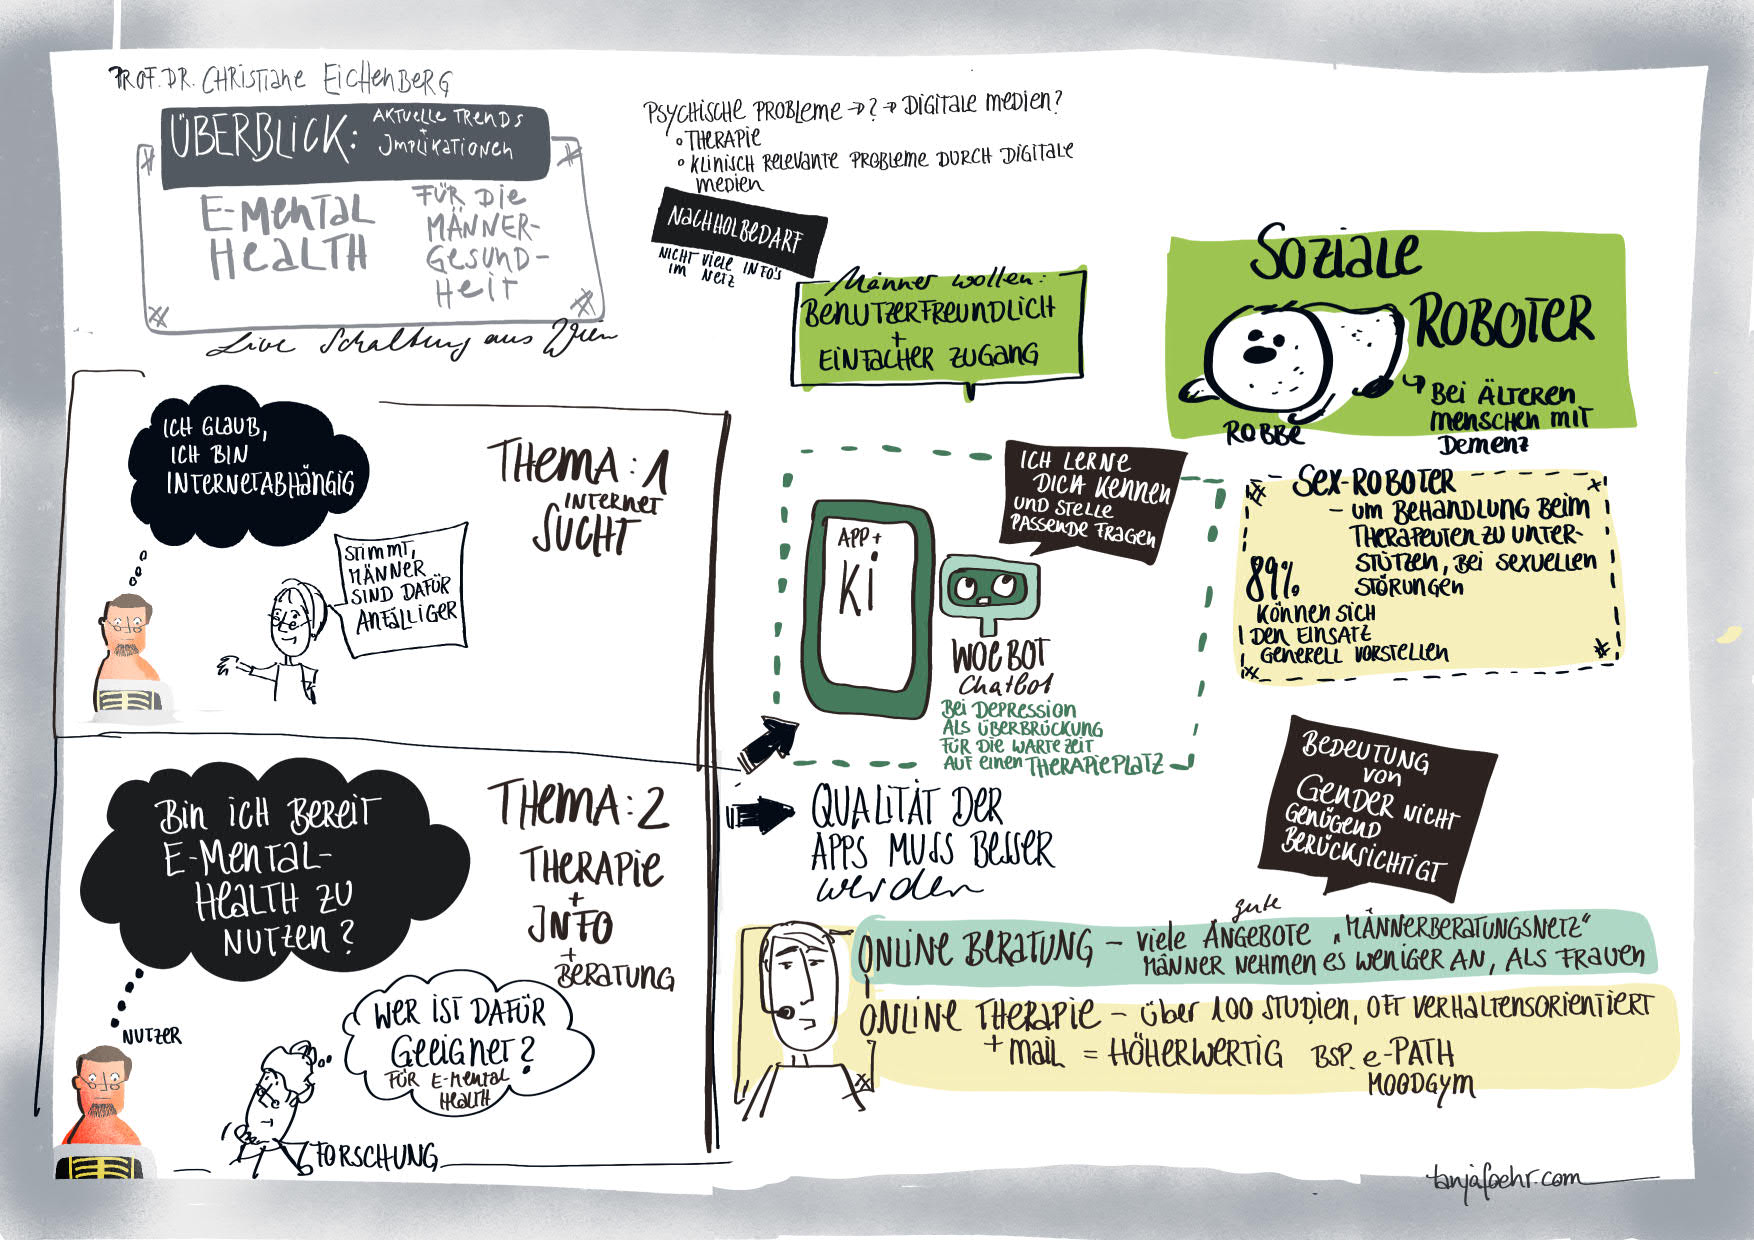 PROF. DR. CHRISTIANE EICHENBERG
ÜBERBLICK:
AKTUELLE TRENDS
+
IMPLIKATIONEN
E-MENTAL
HEALTH
FÜR DIE
MÄNNER-
GESUND-
HEIT
Live Schaltung aus Wien
PSYCHISCHE PROBLEME → ? → DIGITALE MEDIEN?
° THERAPIE
° KLINISCH RELEVANTE PROBLEME DURCH DIGITALE
MEDIEN
NACHHOLBEDARF
NICHT VIELE INFO'S
IM NETZ
Männer wollen:
BENUTZERFREUNDLICH
+
EINFACHER ZUGANG
SOZIALE
ROBOTER
ROBBE
↳ BEI ÄLTEREN
MENSCHEN MIT
DEMENZ
ICH GLAUB,
ICH BIN
INTERNETABHÄNGIG
STIMMT,
MÄNNER
SIND DAFÜR
ANFÄLLIGER
THEMA: 1
INTERNET
SUCHT
APP +
KI
ICH LERNE
DICH KENNEN
UND STELLE
PASSENDE FRAGEN
WOEBOT
Chatbot
BEI DEPRESSION
ALS ÜBERBRÜCKUNG
FÜR DIE WARTEZEIT
AUF EINEN THERAPIEPLATZ
SEX-ROBOTER
- UM BEHANDLUNG BEIM
THERAPEUTEN ZU UNTER-
STÜTZEN, BEI SEXUELLEN
STÖRUNGEN
89%
KÖNNEN SICH
DEN EINSATZ
GENERELL VORSTELLEN
BIN ICH BEREIT
E-MENTAL-
HEALTH ZU
NUTZEN?
NUTZER
THEMA: 2
THERAPIE
+
INFO
+
BERATUNG
WER IST DAFÜR
GEEIGNET?
FÜR E-MENTAL
HEALTH
FORSCHUNG
QUALITÄT DER
APPS MUSS BESSER
werden
BEDEUTUNG
VON
GENDER NICHT
GENÜGEND
BERÜCKSICHTIGT
gute
ONLINE BERATUNG - VIELE ANGEBOTE „MÄNNERBERATUNGSNETZ"
MÄNNER NEHMEN ES WENIGER AN, ALS FRAUEN
ONLINE THERAPIE - ÜBER 100 STUDIEN, OFT VERHALTENSORIENTIERT
+ MAIL = HÖHERWERTIG BSP. e-PATH
MOODGYM
tanjafoehr.com